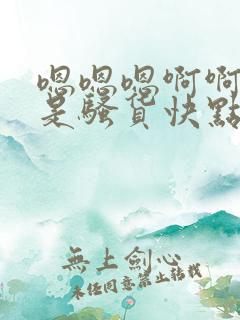 嗯嗯嗯啊啊
是騷貨快點
無上劍心
未经同意禁止转载